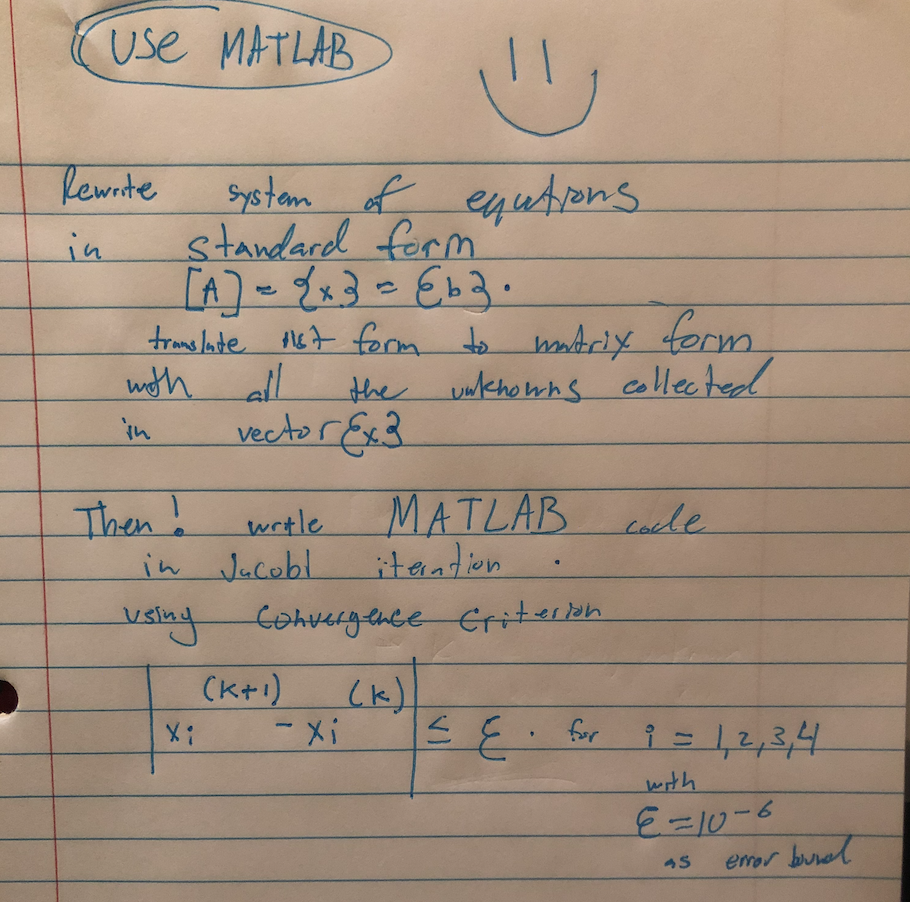 USE MATLAB
Rewrite system of equations
in standard form
[A] = {x} = {b}.
translate list form to matrix form
with all the unknowns collected
in vector {x}
Then! write MATLAB code
in Jacobi iteration.
using convergence criterion
|xi^(k+1) - xi^(k)| ≤ ε. for i = 1,2,3,4
with
ε = 10^-6
as error bound